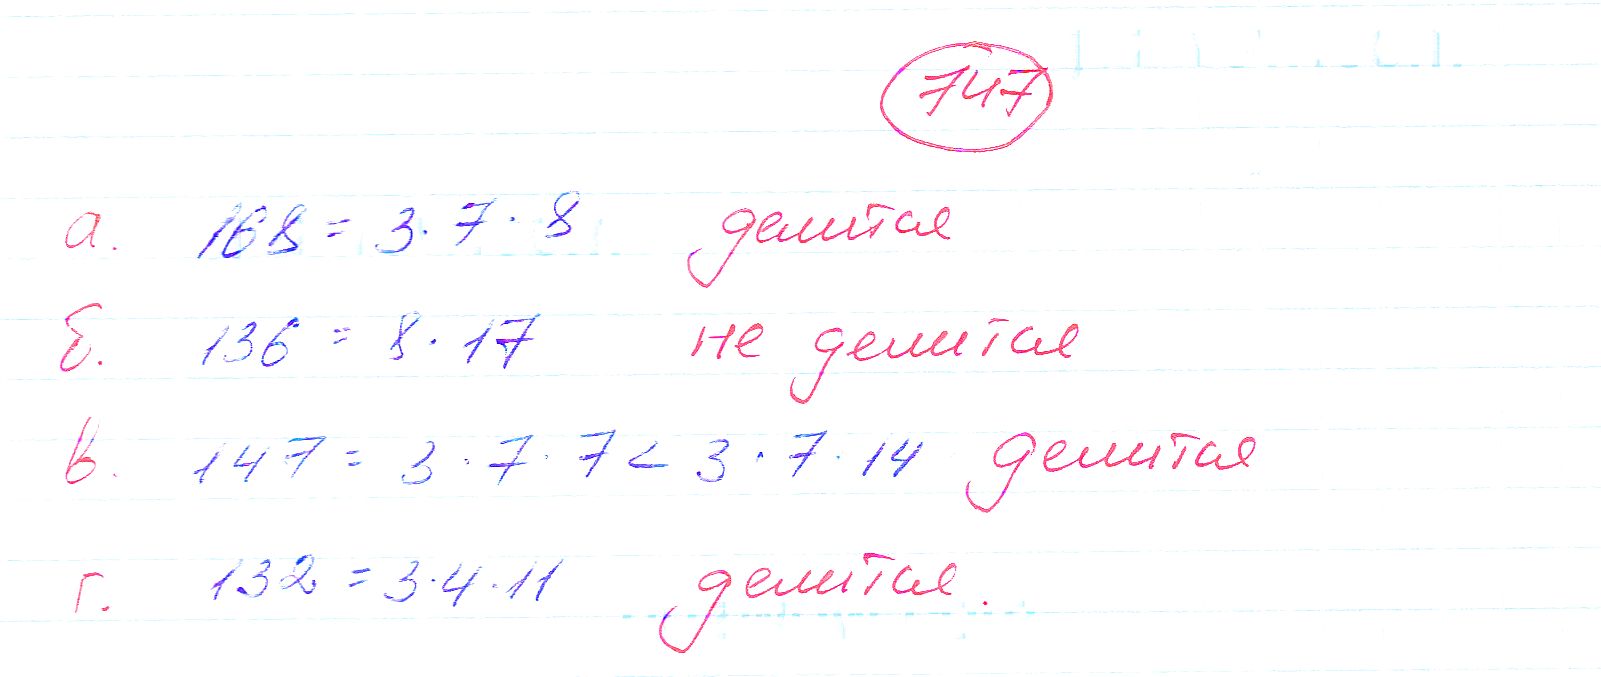 747
а. 168 = 3 · 7 · 8 делится
б. 136 = 8 · 17 не делится
в. 147 = 3 · 7 · 7 < 3 · 7 · 14 делится
г. 132 = 3 · 4 · 11 делится.